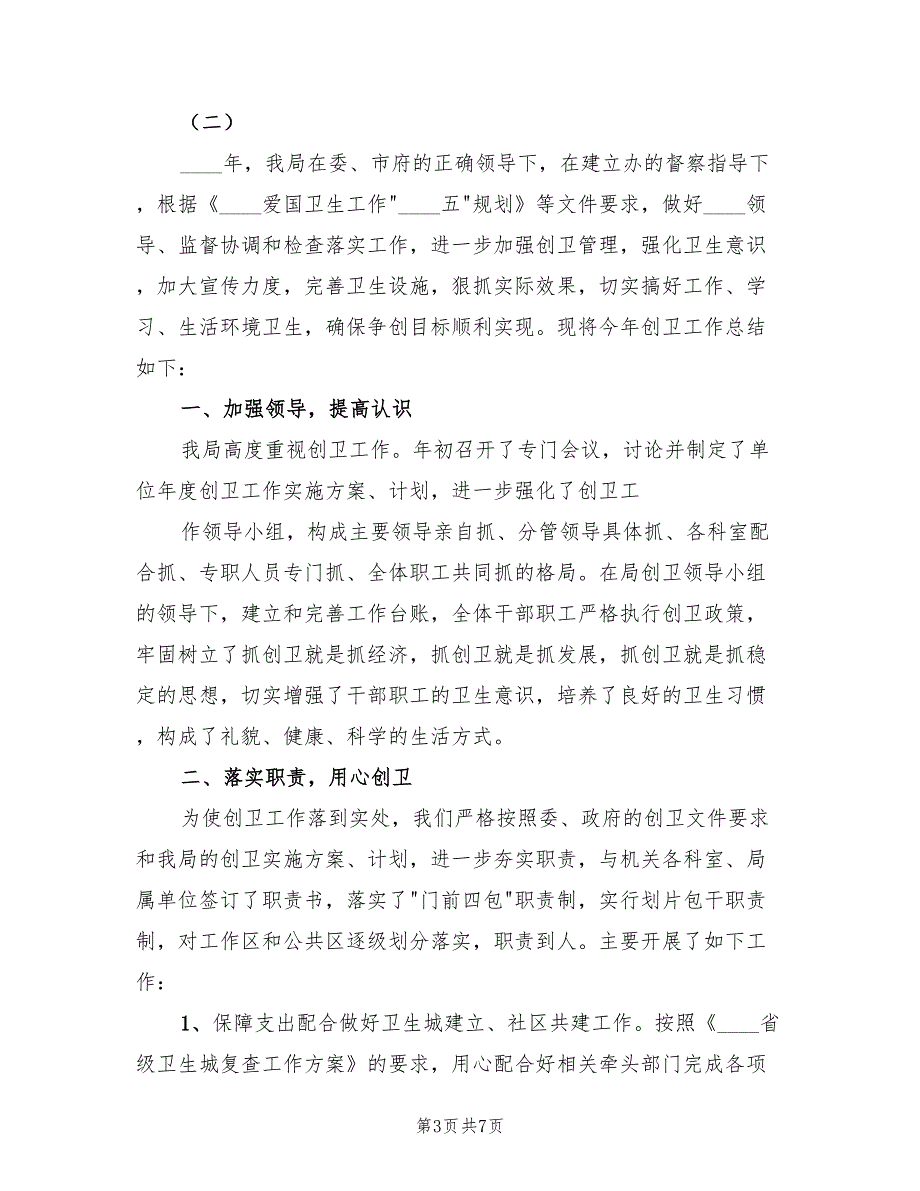 （二）
____年，我局在委、市府的正确领导下，在建立办的督察指导下
，根据《____爱国卫生工作"____五"规划》等文件要求，做好____领
导、监督协调和检查落实工作，进一步加强创卫管理，强化卫生意识
，加大宣传力度，完善卫生设施，狠抓实际效果，切实搞好工作、学
习、生活环境卫生，确保争创目标顺利实现。现将今年创卫工作总结
如下：
一、加强领导，提高认识
我局高度重视创卫工作。年初召开了专门会议，讨论并制定了单
位年度创卫工作实施方案、计划，进一步强化了创卫工
作领导小组，构成主要领导亲自抓、分管领导具体抓、各科室配
合抓、专职人员专门抓、全体职工共同抓的格局。在局创卫领导小组
的领导下，建立和完善工作台账，全体干部职工严格执行创卫政策，
牢固树立了抓创卫就是抓经济，抓创卫就是抓发展，抓创卫就是抓稳
定的思想，切实增强了干部职工的卫生意识，培养了良好的卫生习惯
，构成了礼貌、健康、科学的生活方式。
二、落实职责，用心创卫
为使创卫工作落到实处，我们严格按照委、政府的创卫文件要求
和我局的创卫实施方案、计划，进一步夯实职责，与机关各科室、局
属单位签订了职责书，落实了"门前四包"职责制，实行划片包干职责
制，对工作区和公共区逐级划分落实，职责到人。主要开展了如下工
作：
1、保障支出配合做好卫生城建立、社区共建工作。按照《____省
级卫生城复查工作方案》的要求，用心配合好相关牵头部门完成各项
第3页共7页